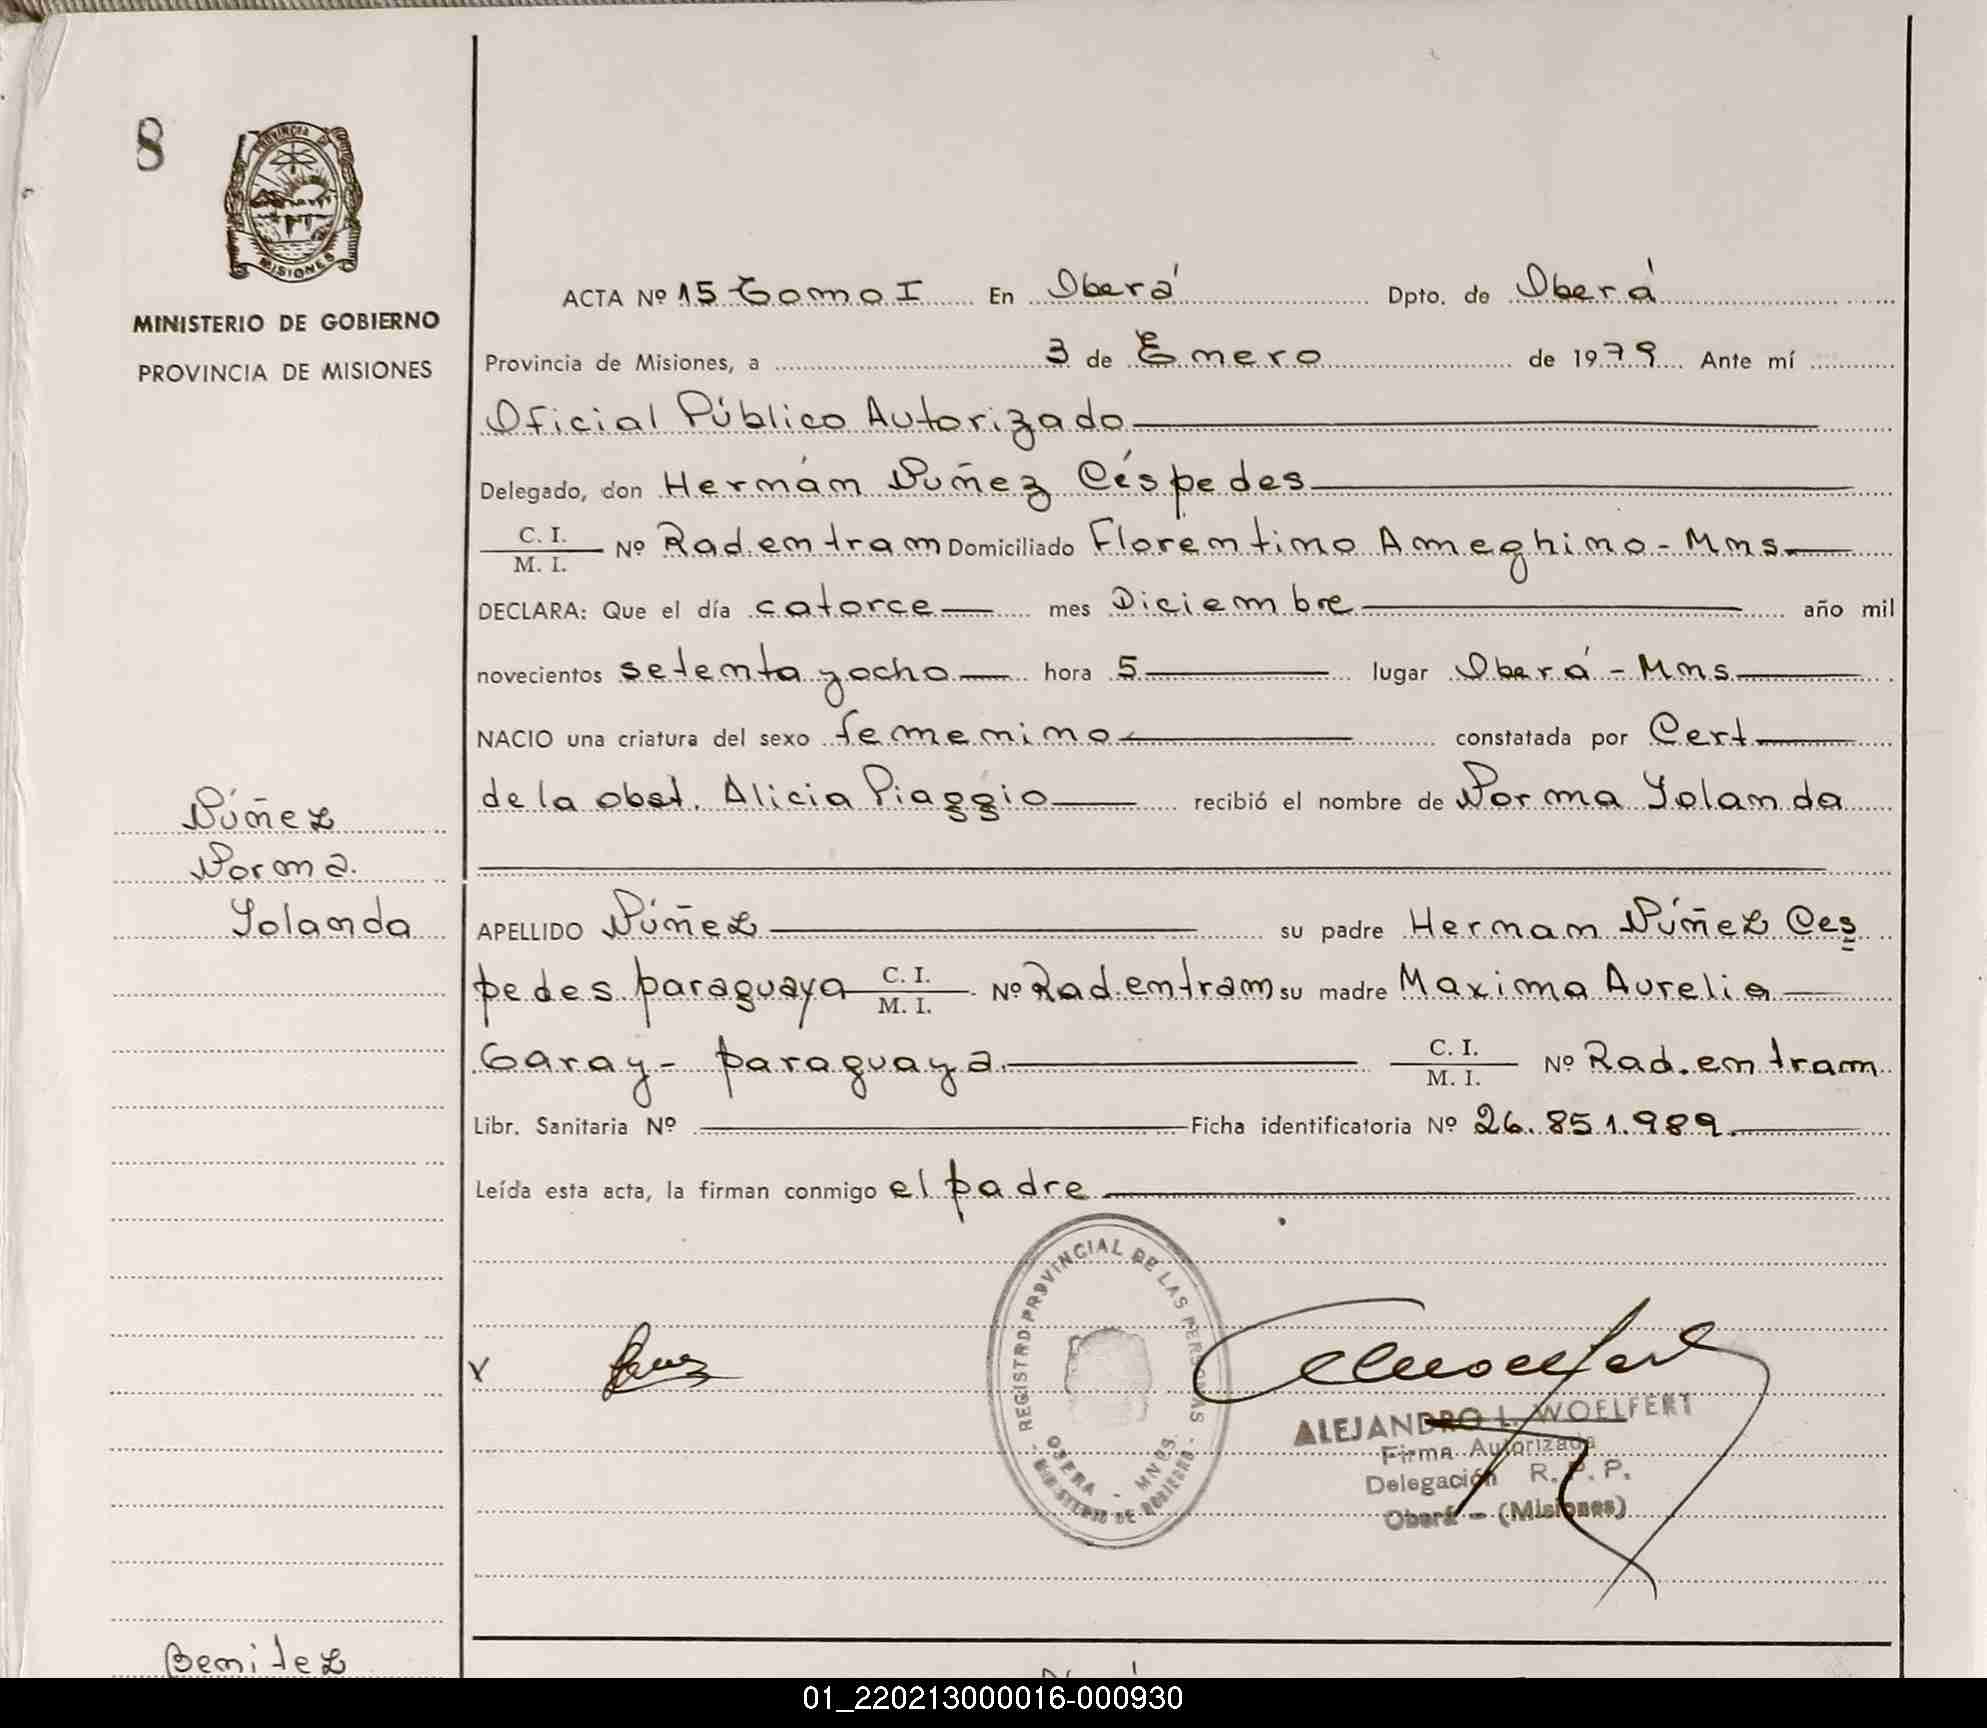 8
PROVINCIA DE
MISIONES
MINISTERIO DE GOBIERNO
PROVINCIA DE MISIONES
ACTA Nº 15 Tomo I En Oberá Dpto. de Oberá
Provincia de Misiones, a 3 de Enero de 1979 Ante mí
Oficial Público Autorizado
Delegado, don Hermán Nuñez Céspedes
C. I.
M. I. Nº Rad. en tram Domiciliado Florentino Ameghino - Mns
DECLARA: Que el día catorce mes Diciembre año mil
novecientos setenta y ocho hora 5 lugar Oberá - Mns
NACIO una criatura del sexo femenino constatada por Cert
de la obst. Alicia Piaggio recibió el nombre de Norma Yolanda
Núñez
Norma
Yolanda
APELLIDO Núñez su padre Herman Núñez Ces
pedes paraguaya C. I. M. I. Nº Rad. en tram su madre Maxima Aurelia
Garay - paraguaya C. I. M. I. Nº Rad. en tram
Libr. Sanitaria Nº Ficha identificatoria Nº 26.851.989
Leída esta acta, la firman conmigo el padre
REGISTRO PROVINCIAL DE LAS PERSONAS
OBERA - MNES.
MINISTERIO DE GOBIERNO
ALEJANDRO L. WOELFERT
Firma Autorizada
Delegación R. P. P.
Oberá - (Misiones)
Benitez
01_220213000016-000930